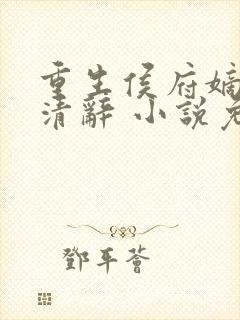 重生侯府嫡
清辭 小說免
鄧平薈